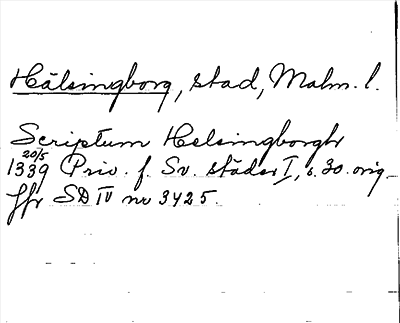 Hälsingborg, stad, Malm. l.
Scriptum Helsingborgh
1339 20/5 Priv. f. Sv. städer I, s. 30. orig.
Jfr SD IV nr 3425.